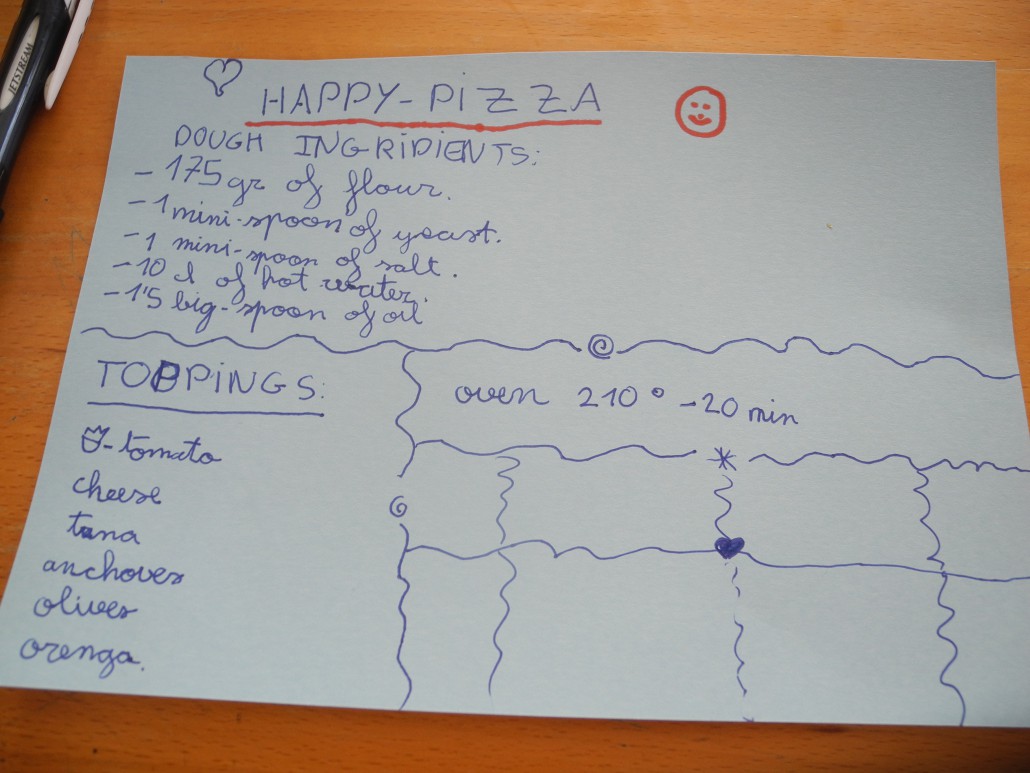 JETSTREAM
HAPPY-PIZZA
DOUGH INGRIDIENTS:
- 175 gr of flour.
- 1 mini-spoon of yeast.
- 1 mini-spoon of salt.
- 10 cl of hot water.
- 1'5 big-spoon of oil
TOPPINGS:
oven 210° - 20 min
- tomato
cheese
tuna
anchoves
olives
orenga.